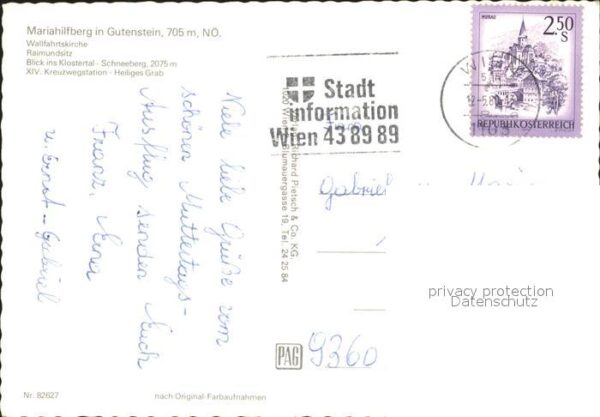 Mariahilfberg in Gutenstein, 705 m, NÖ.
Wallfahrtskirche
Raimundsitz
Blick ins Klostertal - Schneeberg, 2075 m
XIV. Kreuzwegstation - Heiliges Grab
Viele liebe Grüße vom
schönen Muttertags-
Ausflug senden Euch
Franz,
u. Ernst - Gabriel
Nr. 82627
nach Original-Farbaufnahmen
Richard Pietsch & Co. KG.
1020 Wien, Blumauergasse 19, Tel. 24 25 84
PAG
Stadt
information
Wien 43 89 89
WIEN
MURAU
2.50
S
REPUBLIK ÖSTERREICH
Gabriel
9360
privacy protection
Datenschutz